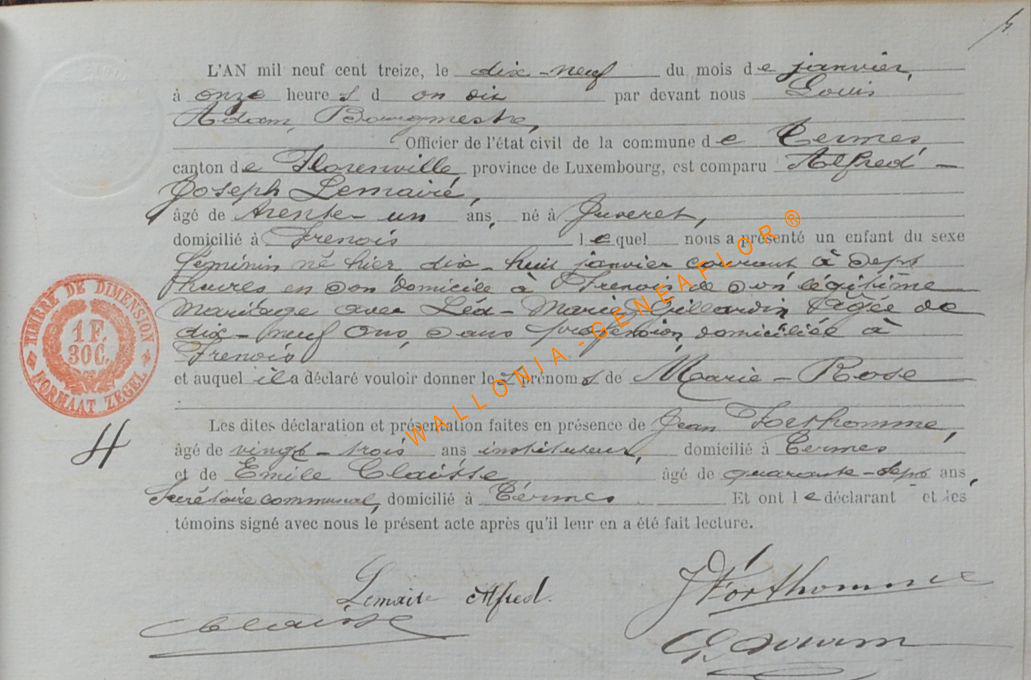 L'AN mil neuf cent treize, le dix-neuf du mois de janvier,
à onze heures d on dix par devant nous Louis
Adam, Bourgmestre,
Officier de l'état civil de la commune de Termes,
canton de Florenville, province de Luxembourg, est comparu Alfred-
Joseph Lemaire,
âgé de trente-un ans, né à
domicilié à Frenois lequel nous a présenté un enfant du sexe
féminin né hier dix-huit janvier courant à sept
heures en son domicile à Frenois de son légitime
mariage avec Léa-Marie âgée de
dix-neuf ans, sans profession, domiciliée à
Frenois
et auquel il a déclaré vouloir donner les prénoms de Marie-Rose
Les dites déclaration et présentation faites en présence de Jean Forthomme,
âgé de vingt-trois ans instituteur, domicilié à Termes
et de Emile Claisse âgé de quarante-sept ans,
Secrétaire communal, domicilié à Termes Et ont le déclarant et les
témoins signé avec nous le présent acte après qu'il leur en a été fait lecture.
4
TIMBRE DE DIMENSION
1 F.
30 C.
FORMAAT ZEGEL
WALLONIA-GENEAFLOR®
Lemaire Alfred.
J Forthomme
Claisse